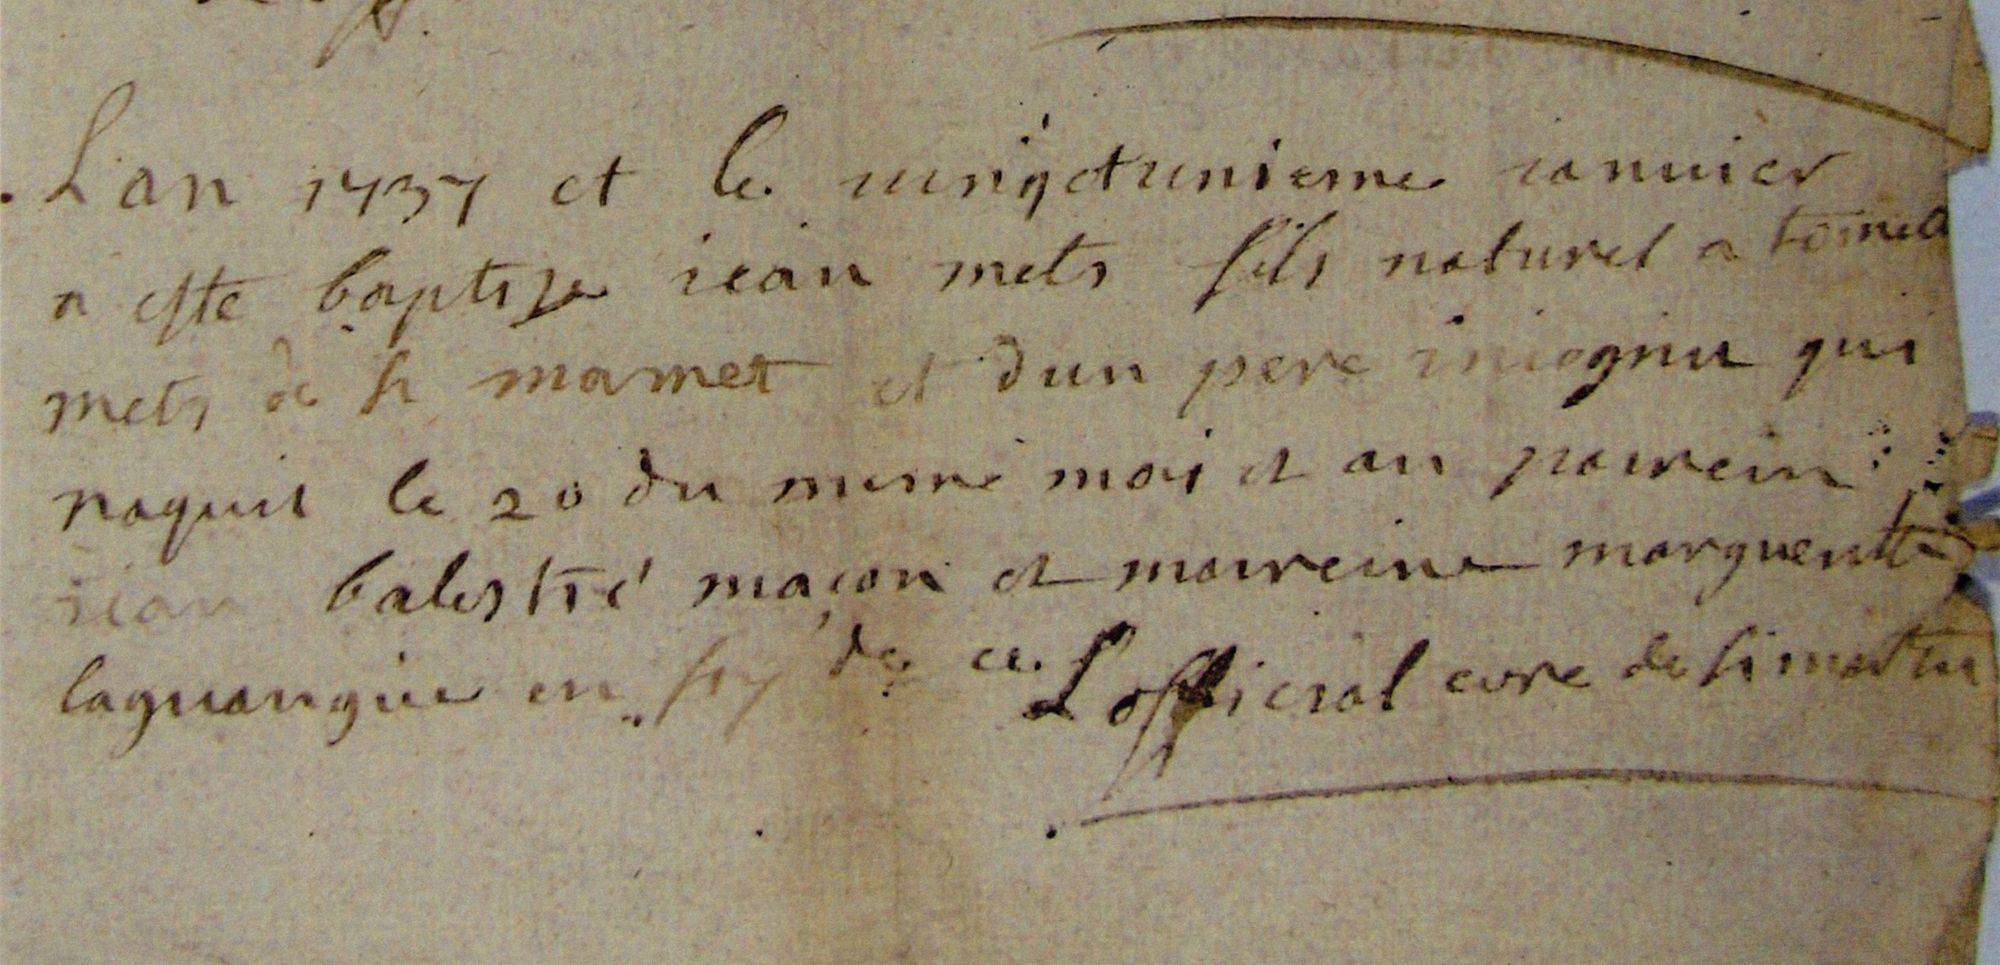 L'an 1737 et le vingtetunieme ianvier
a este baptize iean mets fils naturel a toinete
mets de st mamet et dun pere iniognu qui
naquit le 20 du meme moi et an pairein
iean balestrié maçon et maireine marguerite
laguaugie en foy de ce Loffi cial cure de st